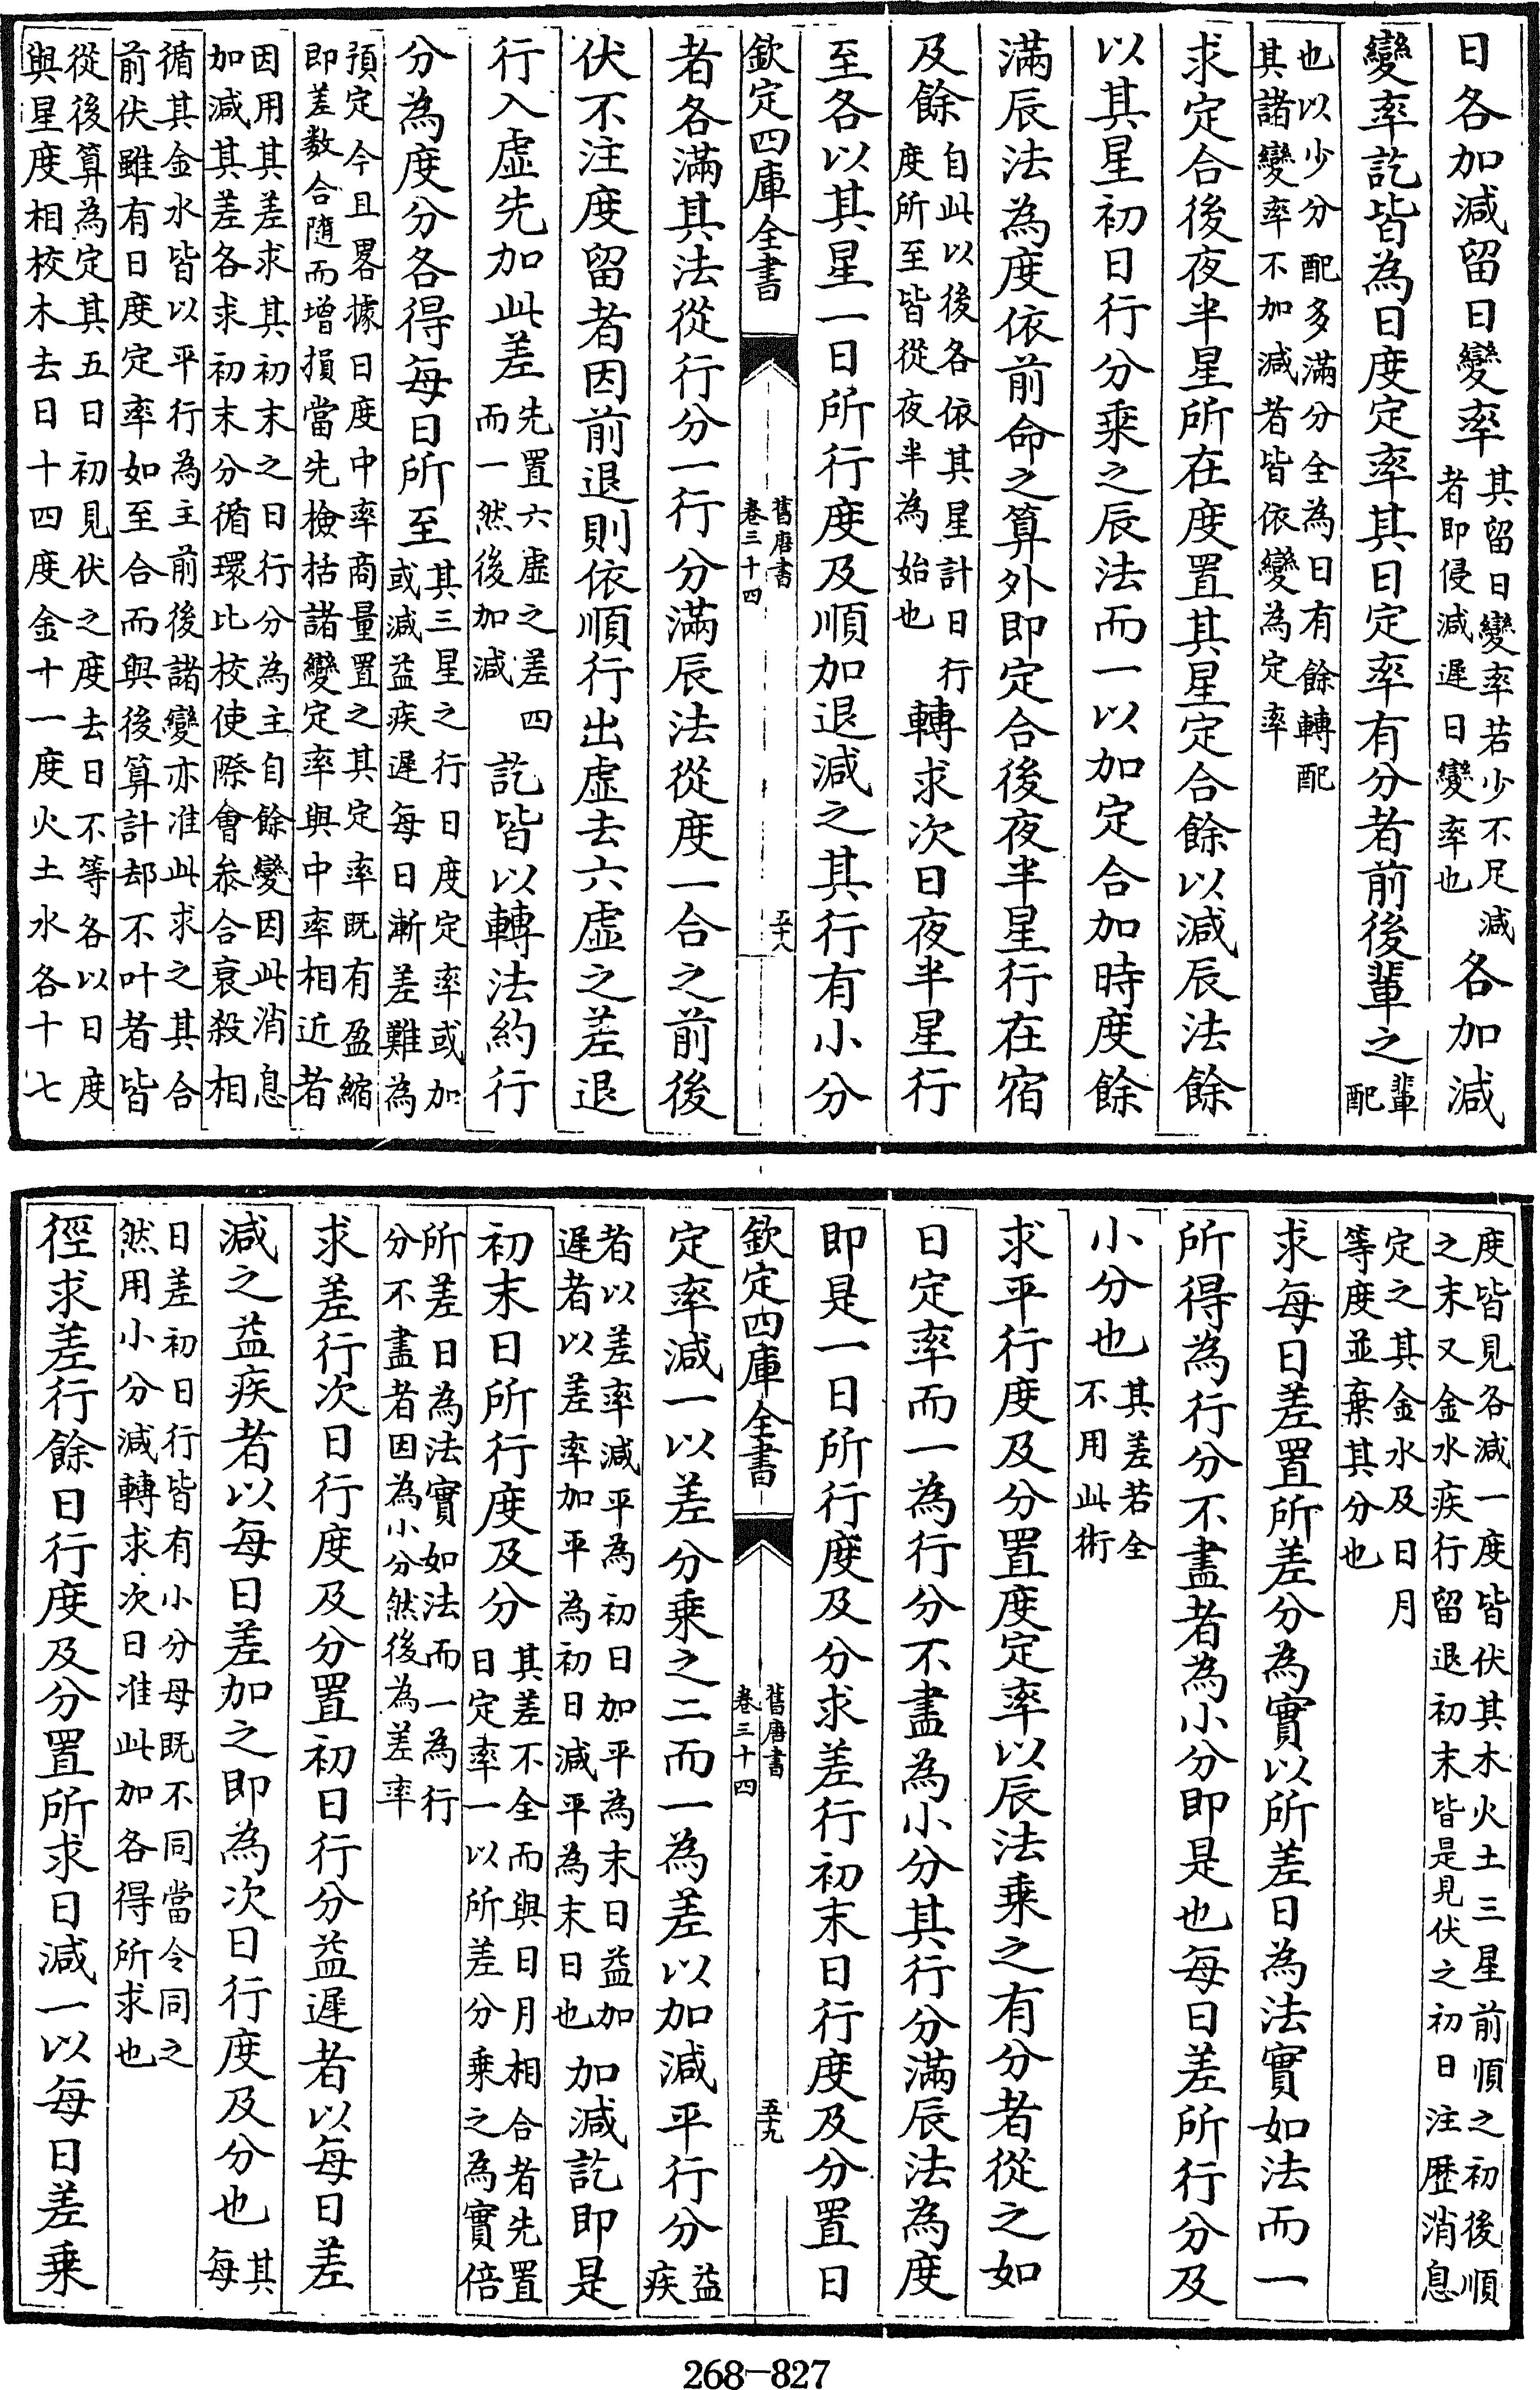 日各加減留日變率其留日變率若少不足減者即侵減遲日變率也各加減
變率訖皆為日度定率其日定率有分者前後輩之輩配
也以少分配多滿分全為日有餘轉配其諸變率不加減者皆依變為定率
求定合後夜半星所在度置其星定合餘以減辰法餘
以其星初日行分乗之辰法而一以加定合加時度餘
滿辰法為度依前命之算外即定合後夜半星行在宿
及餘自此以後各依其星計日行度所至皆從夜半為始也轉求次日夜半星行
至各以其星一日所行度及順加退減之其行有小分
欽定四庫全書
舊唐書
卷三十四
五十八
者各滿其法從行分一行分滿辰法從度一合之前後
伏不注度留者因前退則依順行出虛去六虛之差退
行入虛先加此差先置六虛之差四而一然後加減訖皆以轉法約行
分為度分各得每日所至其三星之行日度定率或加或減益疾遲每日漸差難為
預定今且畧據日度中率商量置之其定率既有盈縮即差數合隨而增損當先檢括諸變定率與中率相近者
因用其差求其初末之日行分為主自餘變因此消息加減其差各求初末分循環比校使際會叅合衰殺相
循其金水皆以平行為主前後諸變亦准此求之其合前伏雖有日度定率如至合而與後算計却不叶者皆
從後算為定其五日初見伏之度去日不等各以日度與星度相校木去日十四度金十一度火土水各十七
度皆見各減一度皆伏其木火土三星前順之初後順之末又金水疾行留退初末皆是見伏之初日注歴消息
定之其金水及日月等度並棄其分也
求每日差置所差分為實以所差日為法實如法而一
所得為行分不盡者為小分即是也每日差所行分及
小分也其差若全不用此術
求平行度及分置度定率以辰法乗之有分者從之如
日定率而一為行分不盡為小分其行分滿辰法為度
即是一日所行度及分求差行初末日行度及分置日
欽定四庫全書
舊唐書
卷三十四
五十九
定率減一以差分乗之二而一為差以加減平行分益疾
者以差率減平為初日加平為末日益加遲者以差率加平為初日減平為末日也加減訖即是
初末日所行度及分其差不全而與日月相合者先置日定率一以所差分乗之為實倍
所差日為法實如法而一為行分不盡者因為小分然後為差率
求差行次日行度及分置初日行分益遲者以每日差
減之益疾者以每日差加之即為次日行度及分也其每
日差初日行皆有小分母既不同當令同之然用小分減轉求次日准此加各得所求也
徑求差行餘日行度及分置所求日減一以每日差乗
268-827